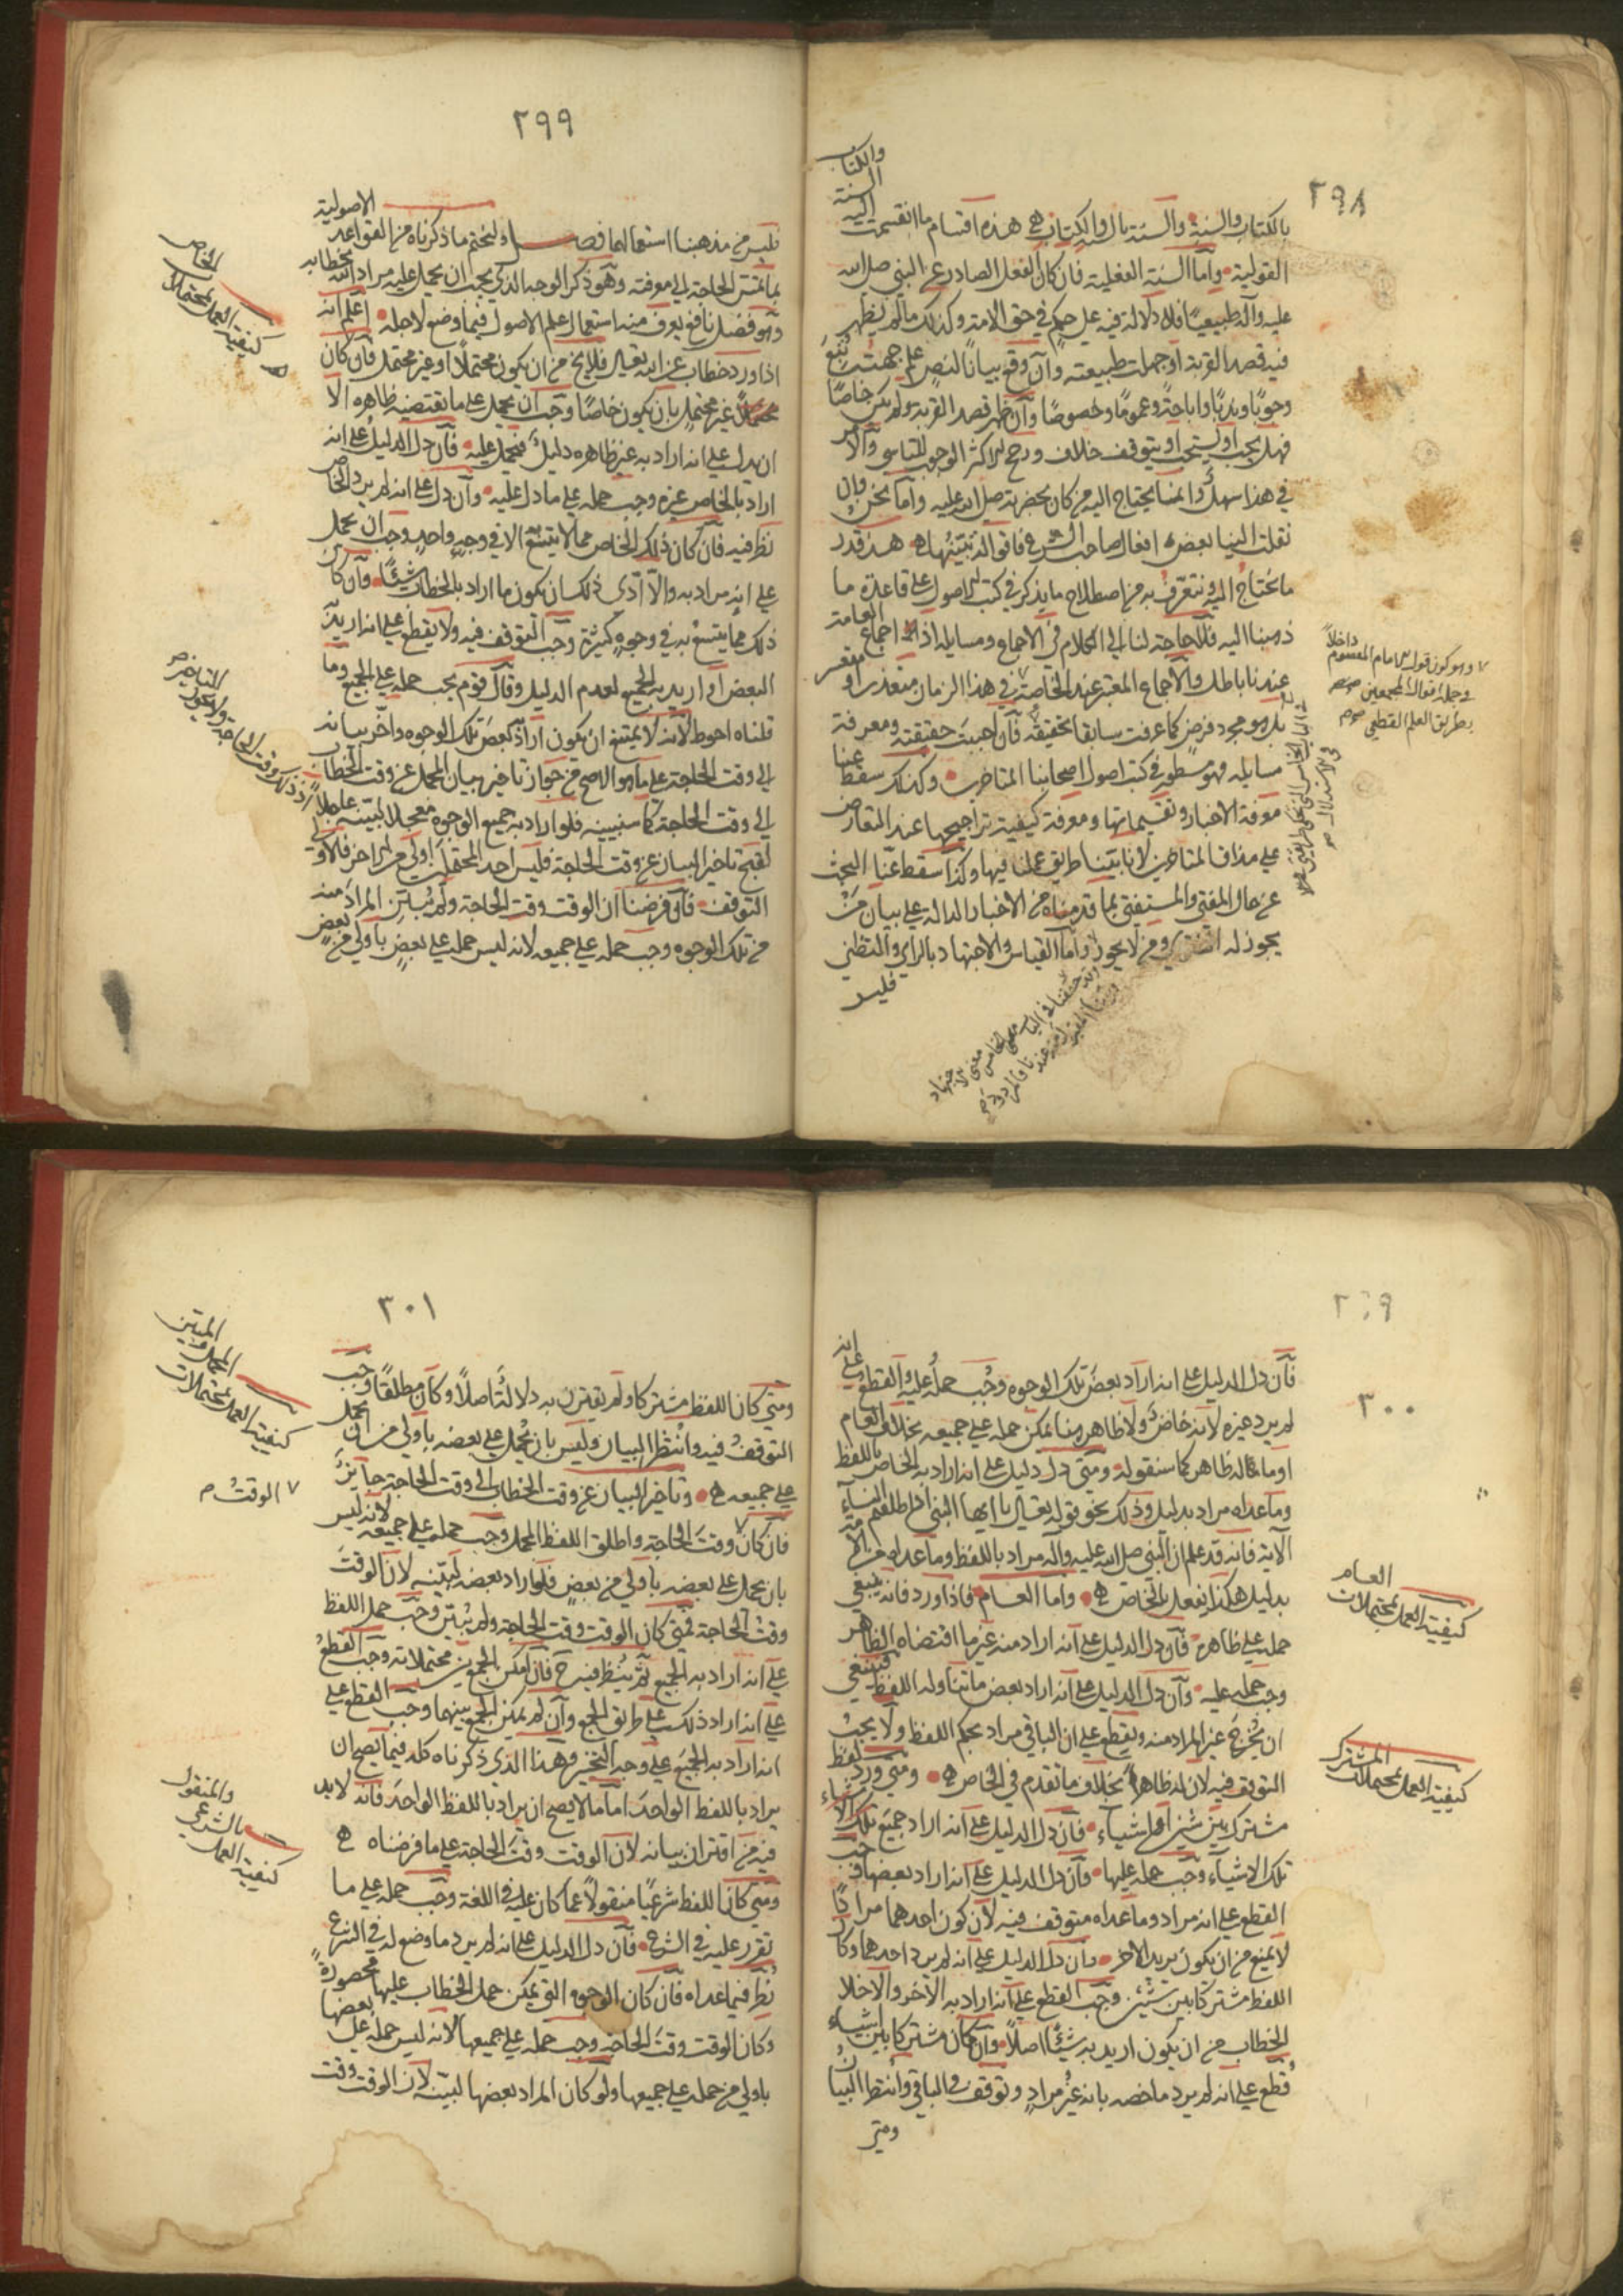 ٢٩٨
بالكتاب والسنة والسنة بالسنة والكتاب هذه اقسام ما انقسمت اليه السنة والكتاب
القولية وأما السنة الفعلية فان كان الفعل الصادر عن النبي صلى الله
عليه وآله طبيعيًا فلا دلالة فيه على حكم في حق الامة وكذلك ما لم يظهر
فيه قصد القربة او جهلت طبيعته وان وقع بيانًا لنص على جهته تتبع
وجوبًا وندبًا واباحة وعمومًا وخصوصًا وان ظهر قصد القربة ولم يكن خاصًا
فهل يجب او يستحب او يتوقف خلاف ورجح الاكثر الوجوب للتاسي والامر
في هذا سهل وانما يحتاج اليه من كان بحضرته صلى الله عليه وأما نحن وان
نقلت الينا بعض افعال صاحب الشرع فاقواله تبينها هذا قدر
ما تحتاج الى تعرفه من اصطلاح ما يذكر في كتب الاصول على قاعدة ما
ذهبنا اليه فلا حاجة لنا الى الكلام في الاجماع ومسايله اذ اجماع العامة
عندنا باطل والاجماع المعتبر عند الخاصة في هذا الزمان متعذر او متعسر
بل هو مجرد فرض كما عرفت سابقا تحقيقه فان احببت حقيقته ومعرفة
مسايله فهو مسطور في كتب اصول اصحابنا المتاخرين وكذلك سقط عنا
معرفة الاخبار وتقسيماتها ومعرفة كيفية تراجيحها عند التعارض
على مذاق المتاخرين لانا بينا طريق عملنا فيها وكذا سقط عنا البحث
عن حال المفتي والمستفتي بما قدمناه من الاخبار الدالة على بيان من
يجوز له الفتوى ومن لا يجوز وأما القياس والاجتهاد بالراي والتظني
فليس
وهو كون قول الامام المعصوم داخلاً
في جملة اقوال المجمعين
بطريق العلم القطعي
٢٩٩
فليس من مذهبنا استعمالهما فصل ولنختم ما ذكرناه من القواعد الاصولية
بما تمس الحاجة الى معرفته وهو ذكر الوجه الذي يجب ان يحمل عليه مراد الله بخطابه
وهو فصل نافع يعرف منه استعمال علم الاصول فيما وضع لاجله اعلم انه
اذا ورد خطاب عن الله تعالى فلا يخ من ان يكون محتملاً او غير محتمل فان كان
غير محتمل بان يكون خاصًا وجب ان يحمل على ما تقتضيه ظاهره الا
ان يدل على انه اراد به غير ظاهره دليل فيحمل عليه فان دل الدليل على انه
اراد بالخاص غيره وجب حمله على ما دل عليه وان دل على انه لم يرد الخاص
نظر فيه فان كان ذلك الخاص مما لا يتسع الا في وجه واحد وجب ان يحمل
على انه مراد به والا ادى ذلك ان يكون ما اراد بالخطاب شيئًا وان كان
ذلك مما يتسع به في وجوه كثيرة وجب التوقف فيه ولا يقطع على انه اريد
البعض او اريد به الجميع لعدم الدليل وقال قوم يجب حمله على الجميع وما
قلناه احوط لأنه لا يمتنع ان يكون اراد بعض تلك الوجوه واخر بيانه
الى وقت الحاجة على ما هو الاصح من جواز تاخير بيان المجمل عن وقت الخطاب
الى وقت الحاجة كما سنبينه فلو اراد به جميع الوجوه معجلا لبينه عاجلاً
لقبح تاخير البيان عن وقت الحاجة فليس احد المحتملين اولى من الاخر فالاولى
التوقف فان فرضنا ان الوقت وقت الحاجة ولم يبين المراد منه
من تلك الوجوه وجب حمله على جميعه لانه ليس حمله على بعض باولى من بعض
كيفية العمل بمحتملات الخاص
٣٠٠
فان دل الدليل على انه اراد بعض تلك الوجوه وجب حمله عليه والقطع على انه
لم يرد غيره لأنه خاص ولا ظاهر هنا يمكن حمله على جميعه بخلاف العام
او ما له ظاهر كما سنقوله ومتى دل دليل على انه اراد به الخاص باللفظ
وما عداه مراد بدليل وذلك نحو قوله تعالى يا ايها النبي اذا طلقتم النساء
الآية فانه قد علم ان النبي صلى الله عليه وآله مراد باللفظ وما عداه من الامة
بدليل هكذا يفعل بالخاص وأما العام فاذا ورد فانه ينبغي
حمله على ظاهره فان دل الدليل على انه اراد منه غير ما اقتضاه الظاهر
وجب حمله عليه وان دل الدليل على انه اراد بعض ما تناوله اللفظ فينبغي
ان يخرج غير المراد منه ويقطع على ان الباقي مراد بحكم اللفظ ولا يجب
التوقف فيه لان له ظاهرا بخلاف ما تقدم في الخاص ومتى ورد لفظ
مشترك بين شيئين او اشياء فان دل الدليل على انه اراد جميع تلك الاشياء
تلك الاشياء وجب حمله عليها وان دل الدليل على انه اراد بعضها وجب
القطع على انه مراد وما عداه متوقف فيه لأن كون احدهما مرادًا
لا يمنع من ان يكون يريد الاخر وان دل الدليل على انه لم يرد احدهما وكان
اللفظ مشتركا بين شيئين وجب القطع على انه اراد به الآخر والا خلا
الخطاب من ان يكون اريد به شيئًا اصلاً وان كان مشتركا بين اشياء
قطع على انه لم يرد ما خصه بانه غير مراد وتوقف في الباقي وانتظر البيان
ومتى
كيفية العمل بمحتملات العام
كيفية العمل بمحتملات المشترك
٣٠١
ومتى كان اللفظ مشتركا ولم يقترن به دلالة اصلاً وكان مطلقًا وجب
التوقف فيه وانتظر البيان وليس بان يحمل على بعضه باولى من ان يحمل
على جميعه وتاخير البيان عن وقت الخطاب الى وقت الحاجة جايز
فان كان وقت الحاجة واطلق اللفظ المجمل وجب حمله على جميعه لانه ليس
بان يحمل على بعضه باولى من بعض فلو اراد بعضه لبينه لان الوقت
وقت الحاجة فمتى كان الوقت وقت الحاجة ولم يبين وجب حمل اللفظ
على انه اراد به الجميع ثم ينظر فيه ح فان امكن الجمع بين محتملاته وجب القطع
على انه اراد ذلك على طريق الجمع وان لم يمكن الجمع بينهما وجب القطع على
انه اراد به الجميع على وجه التخيير وهذا الذي ذكرناه كله فيما يصح ان
يراد باللفظ الواحد اما ما لا يصح ان يراد باللفظ الواحد فانه لا بد
فيه من اقتران بيانه لان الوقت وقت الحاجة على ما فرضناه
ومتى كان اللفظ شرعيًا منقولاً عما كان عليه في اللغة وجب حمله على ما
تقرر عليه في الشرع فان دل الدليل على انه لم يرد ما وضع له في الشرع
نظر فيما عداه فان كان الوجوه التي يمكن حمل الخطاب عليها محصورة
وكان الوقت وقت الحاجة وجب حمله على جميعها لانه ليس حمله على بعضها
باولى من حمله على جميعها ولو كان المراد بعضها لبينه لان الوقت وقت
كيفية العمل بمحتملات المجمل والمبين
الوقت
كيفية العمل بالشرعي والمنقول